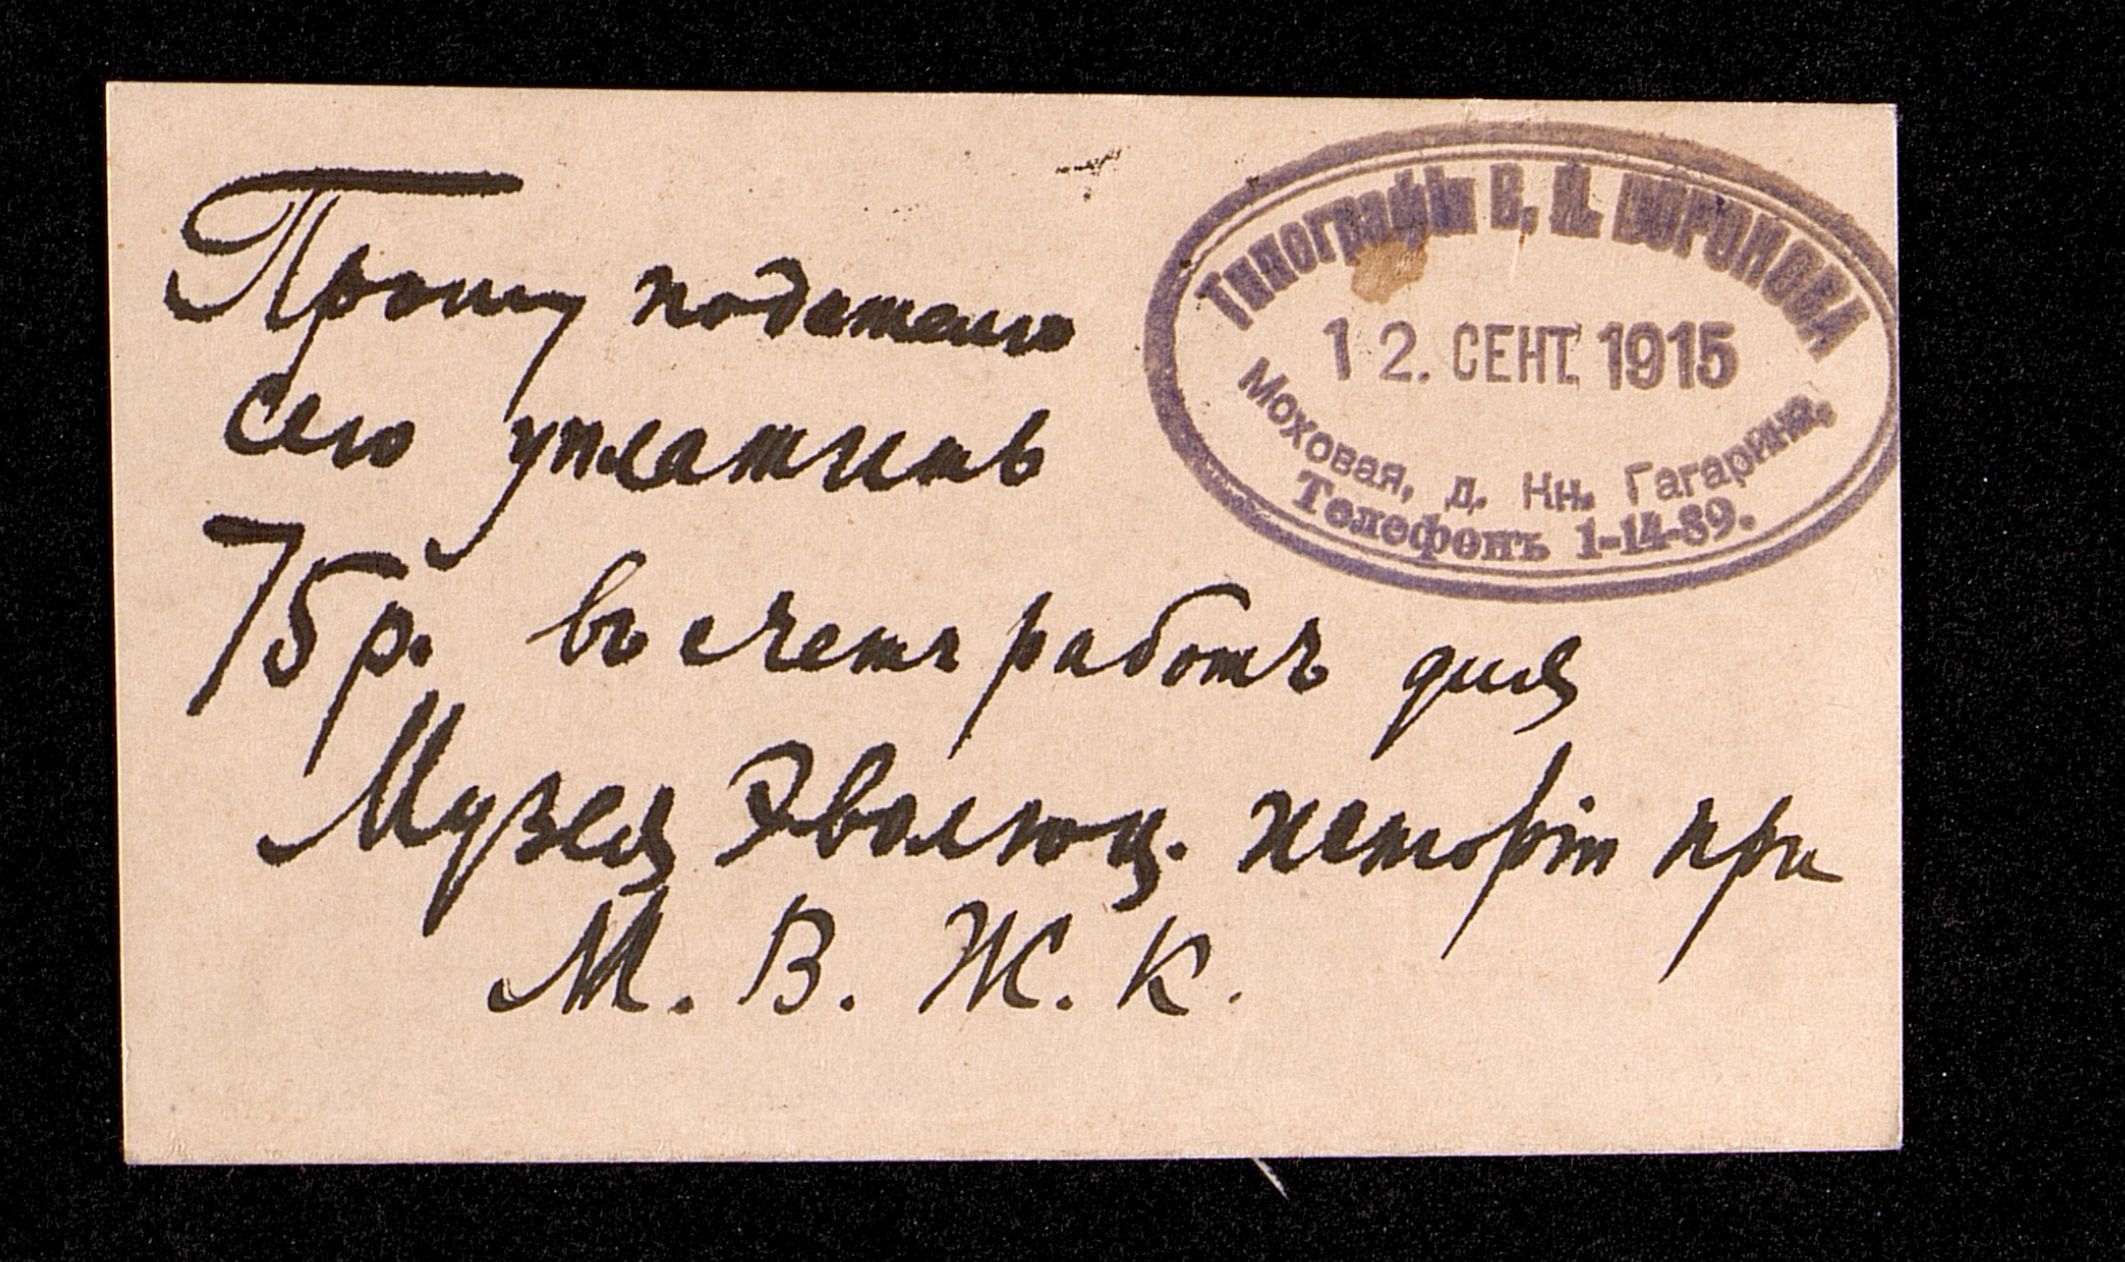 Прошу подателю
сего уплатить
75 р. въ счетъ работъ для
Музея Эволюц. исторіи при
М. В. Ж. К.
Типографія В. И. ВОРОНОВА
12. СЕНТ. 1915
Моховая, д. Кн. Гагарина,
Телефонъ 1-14-89.